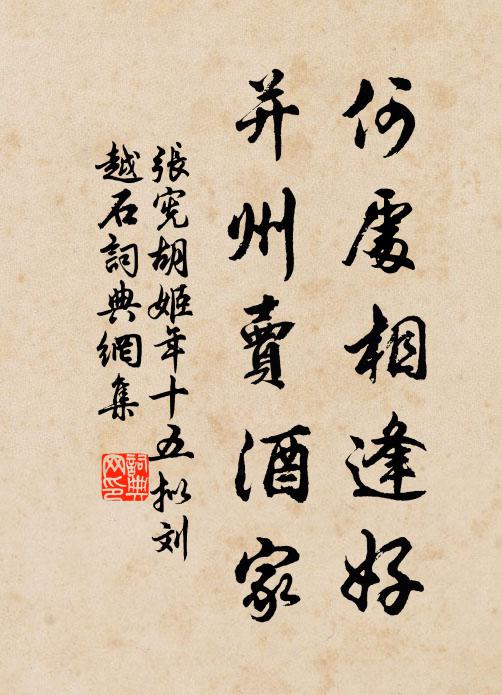 何處相逢好
并州賣酒家
張宪胡姬年十五拟刘
越石詞典網集
詞典网印